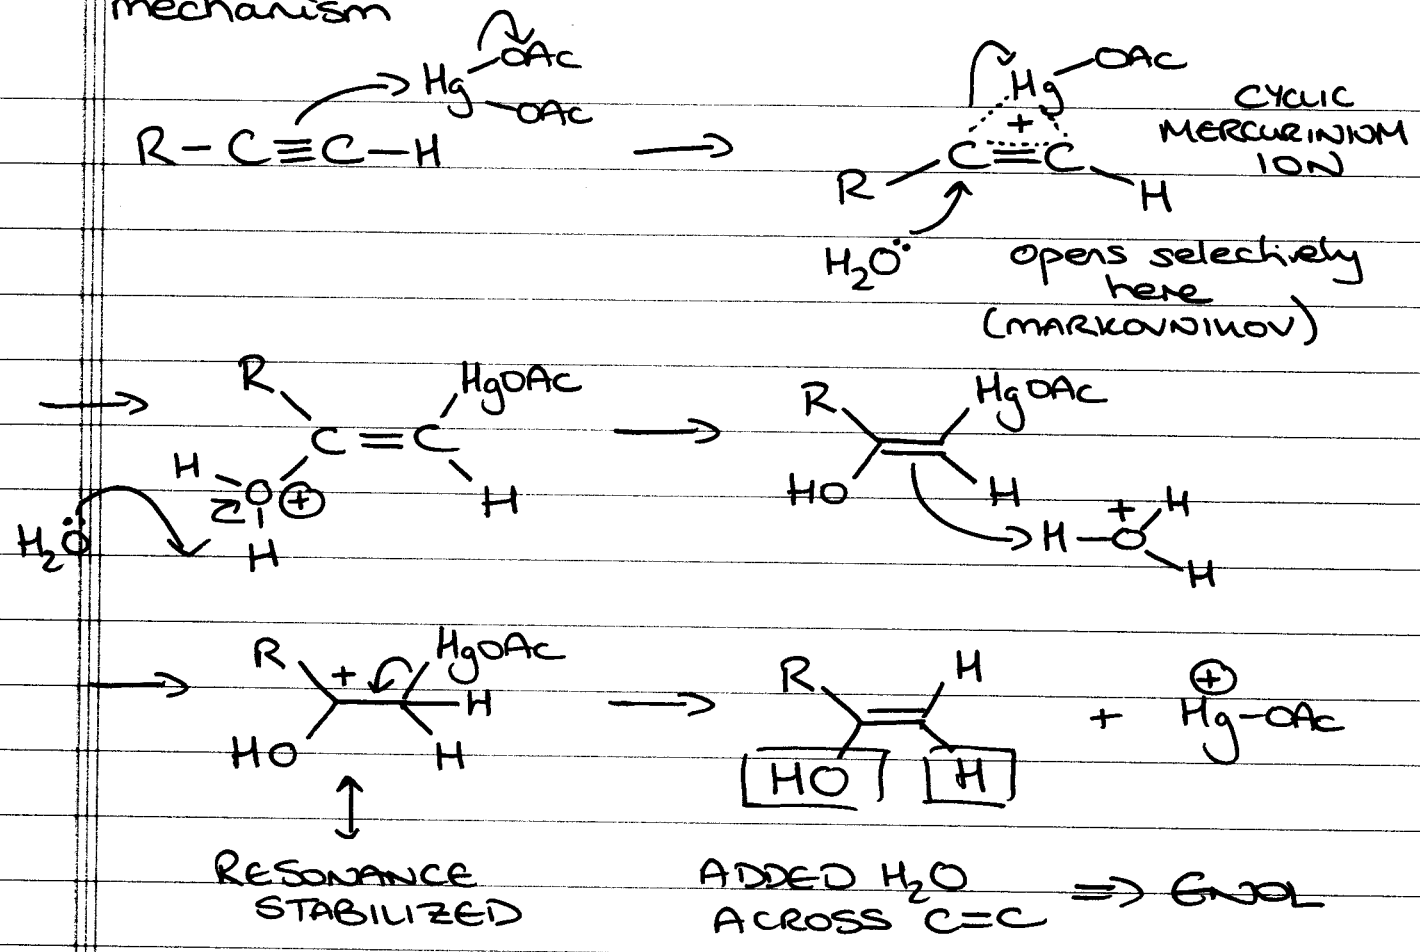 mechanism
Hg OAc
OAc
R–C≡C–H
Hg–OAc
+
R C≡C H
CYCLIC
MERCURINIUM
ION
H₂Ö
opens selectively
here
(MARKOVNIKOV)
R HgOAc
C=C
H O ⊕ H
H₂Ö H
R HgOAc
HO H
H–O + H
H
R + HgOAc
H
HO H
R H
HO H
+ ⊕
Hg–OAc
RESONANCE
STABILIZED
ADDED H₂O
ACROSS C=C
⇒ ENOL